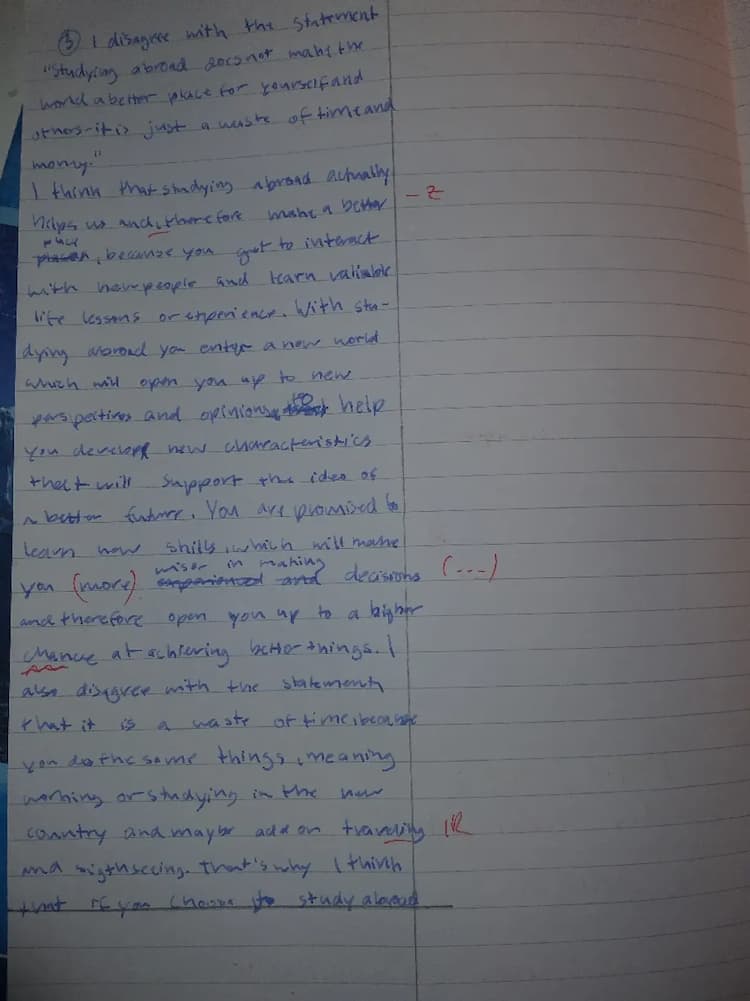 ③ I disagree with the statement
"Studying abroad does not make the
world a better place for yourself and
others-it is just a waste of time and
money."
I think that studying abroad actually
helps us and, therefore make a better - Z
place
, because you get to interact
with new people and learn valiable
life lessons or experience. With stu-
dying abroad you enter a new world
which will open you up to new
perspectives and opinions to help
you develop new characteristics
that will support the idea of
a better future. You are promised to
learn new skills, which will make
wiser in making
you (more) experienced and decisions (---)
and therefore open you up to a higher
chance at achieving better things. I
also disagree with the statement,
that it is a waste of time, because
you do the same things, meaning
working or studying in the new
country and maybe add on traveling R
and sigthseeing. That's why I think
that if you choose to study abroad